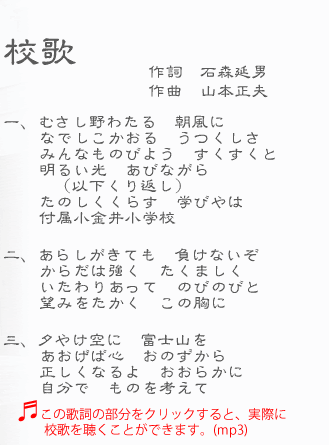 校歌
作詞　石森延男
作曲　山本正夫
一、むさし野わたる　朝風に
なでしこかおる　うつくしさ
みんなものびよう　すくすくと
明るい光　あびながら
（以下くり返し）
たのしくくらす　学びやは
付属小金井小学校
二、あらしがきても　負けないぞ
からだは強く　たくましく
いたわりあって　のびのびと
望みをたかく　この胸に
三、夕やけ空に　富士山を
あおげば心　おのずから
正しくなるよ　おおらかに
自分で　ものを考えて
この歌詞の部分をクリックすると、実際に
校歌を聴くことができます。(mp3)